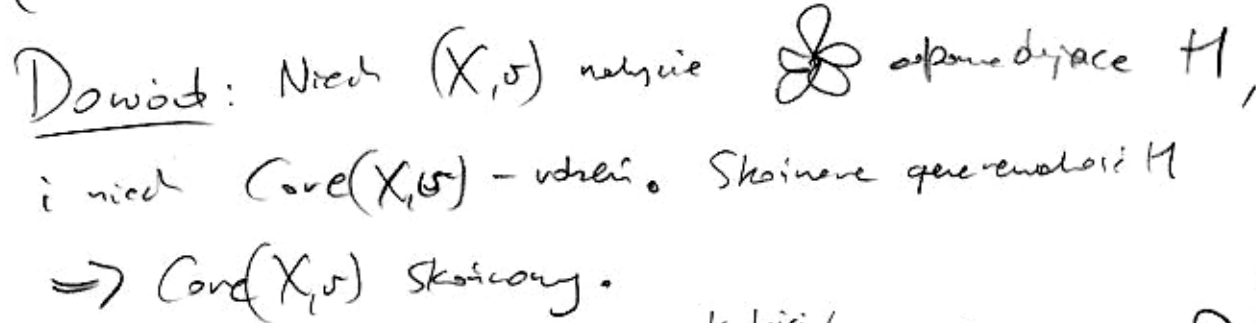 Dowód: Niech (X,v) nakrycie odpowiadające H,
i niech Core(X,v) - rdzeń. Skończona generowalność H
=> Core(X,v) skończony.